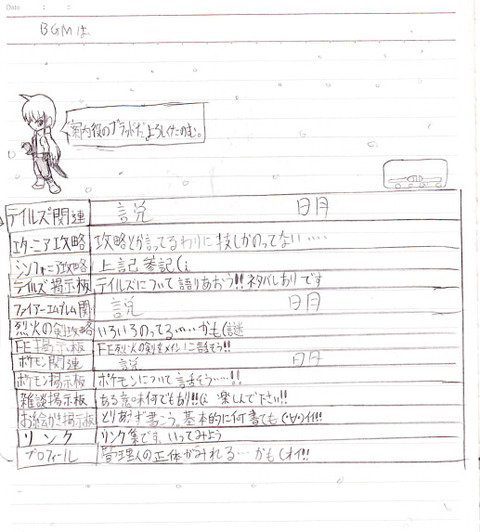 Date
BGMは
案内役のブラッドだ、よろしくたのむ。
テイルズ関連 説 明
エターニア攻略 攻略とか言ってるわりに技しかのってない‥‥
シンフォニア攻略 上記参記(i
テイルズ掲示板 テイルズについて語りあおう!!ネタバレありです
ファイアーエムブレム関 説 明
烈火の剣攻略 いろいろのってる‥‥かも(謎
FE掲示板 FE烈火の剣をメインに話そう!!
ポケモン関連 説 明
ポケモン掲示板 ポケモンについて話そう‥‥!!
雑談掲示板 ある意味何でもあり!!(i 楽しんで下さい!!
お絵かき掲示板 とりあえず書こう。基本的に何書いても
リンク リンク集です、いってみよう
プロフィール 管理人の正体がみれる…かも(オイ!!